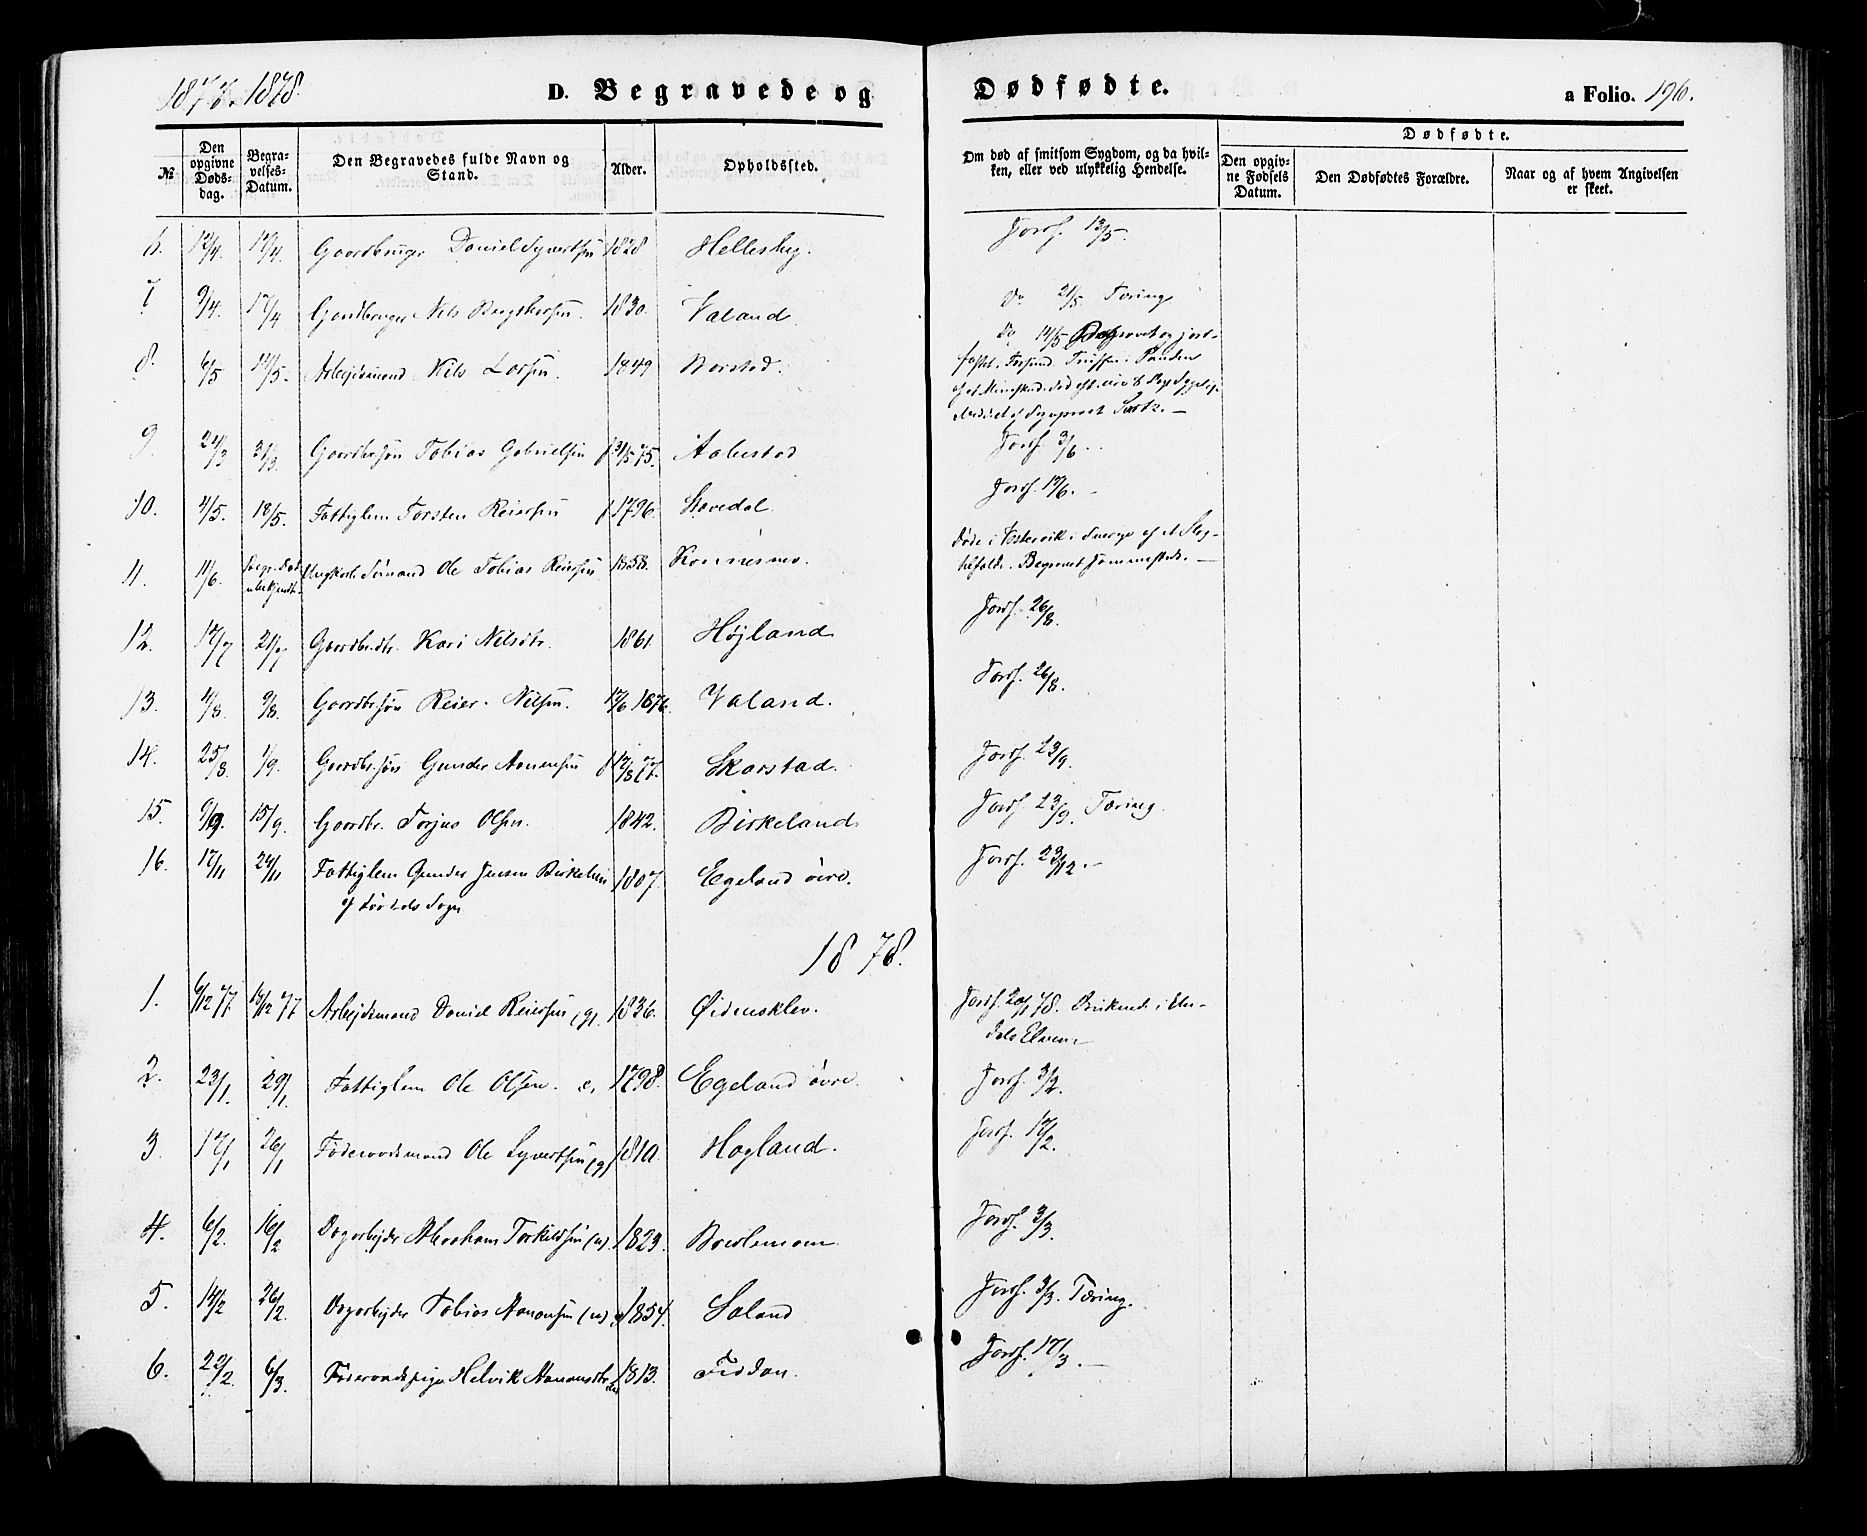 1877. 1878.
D. Begravede og Dødfødte.
a Folio. 196.
№
Den opgivne Døds-dag.
Begra-velses-Datum.
Den Begravedes fulde Navn og Stand.
Alder.
Opholdssted.
Om død af smitsom Sygdom, og da hvil-ken, eller ved ulykkelig Hendelse.
Dødfødte.
Den opgiv-ne Fødsels Datum.
Den Dødfødtes Forældre.
Naar og af hvem Angivelsen er skeet.
6. 12/4. 17/4. Gaardbruger Daniel Syvertsen 1828 Hellesby. Jordf. 13/5.
7 9/4. 17/4 Gardbruger Nils 1830. Valand. Do 21/5 Tæring
8. 6/5 14/5. Arbeidsmand Nils Larsen 1849 Do 14/5 Begravet og jord-
fæstet i Farsund.
9. 24/3 31/3. Gaardbrsøn Tobias Gabrielsen f 31/5 75. Aabestad Jordf. 3/6.
10. 4/5. 18/5. Fattiglem Torsten Reiersen f 1796. Stavedal. Jordf. 17/6. -
11. 11/6. ubekjendt. Ungkarl Sømand Ole Tobias Reiersen 1858. Konnesmo. Døde i Vestervik i Sverige af et Slag-
tilfælde. Begravet sammesteds. -
12. 17/7 21/7 Gaardbrdtr. Kari Nilsdtr. 1861. Højland Jordf. 26/8.
13. 4/8. 9/8. Gaardbrsøn Reier Nilsen. 17/6 1876. Valand. Jordf. 26/8.
14. 25/8. 1/9. Gaardbrsøn Gunder Aanensen f 12/8 77. Skarstad. Jordf. 23/9.
15. 9/9. 15/9. Gaardbr. Torjus Olsen. 1842. Birkeland Jordf. 23/9. Tæring.
16. 17/11 24/11 Fattiglem Gunder Jensen 1807. Egeland øvre. Jordf. 23/12. -
1878.
1. 6/12 77. 14/12 77 Arbeidsmand Daniel Reiersen (g). 1836. Øidnesklev. Jordf. 20/1 78. Druknede i
Elven.
2. 23/1. 29/1 Fattiglem Ole Olsen. e, 1798. Egeland øvre. Jordf. 3/2.
3. 17/1 26/1 Føderaadsmand Ole Syvertsen (g) 1810. Hogland. Jordf. 17/2.
4. 6/2. 16/2 Dagarbejder Abraham Torkildsen (u). 1823. Jordf. 3/3.
5. 14/2 26/2. Dagarbejder Tobias Aanensen (u) 1854. Saland Jordf. 3/3. Tæring.
6. 22/2. 6/3. Føderaadspige Helvik Aanensdtr 1813. Feddan. Jordf. 17/3. -